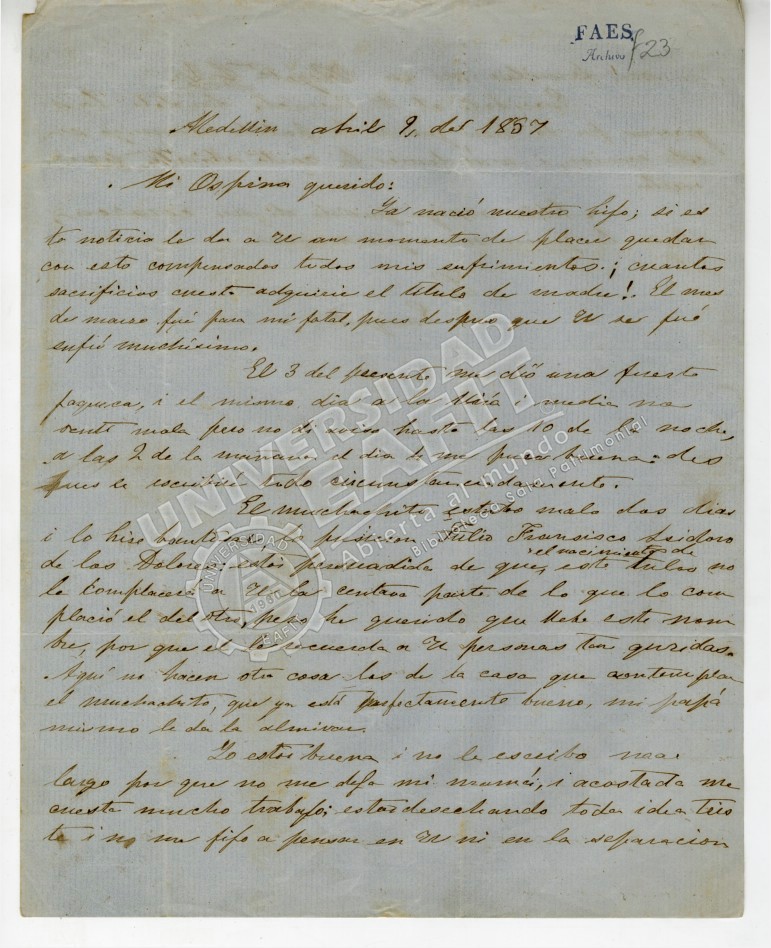 FAES
Archivo f 23
Medellin abril 9, del 1857
Mi Ospina querido:
Ya nació nuestro hijo; si es
ta noticia le da a U un momento de placer quedan
con esto compensados todos mis sufrimientos. ¡cuantos
sacrificios cuesta adquirir el titulo de madre! El mes
de marzo fué para mi fatal, pues despues que U se fué
sufrí muchísimo.
El 3 del presente me dió una fuerte
jaqueca, i el mismo dia a la i media me
senti mala pero no di aviso hasta las 10 de la noche,
a las 2 de la mañana el dia 4 me puse buena. des
pues le escribiré todo circunstanciadamente.
El muchachito estubo malo dos dias
i lo hice bautizar, le pusieron Tulio Francisco Isidoro
de los Dolores; estoi persuadida de que el nacimiento de este Tulio no
le complacerá a U la centava parte de lo que lo com
plació el del otro, pero he querido que lleve este nom
bre, por que el le recuerda a U personas tan queridas.
Aquí no hacen otra cosa los de la casa que contemplar
el muchachito, que ya está perfectamente bueno, mi papá
mismo le da la almivar.
Yo estoi buena i no le escribo mas
largo por que no me deja mi mamá, i acostada me
cuesta mucho trabajo; estoi desechando toda idea tris
te i no me fijo a pensar en U ni en la separacion
UNIVERSIDAD
EAFIT
Abierta al mundo
Biblioteca Sala Patrimonial
UNIVERSIDAD
1960
EAFIT